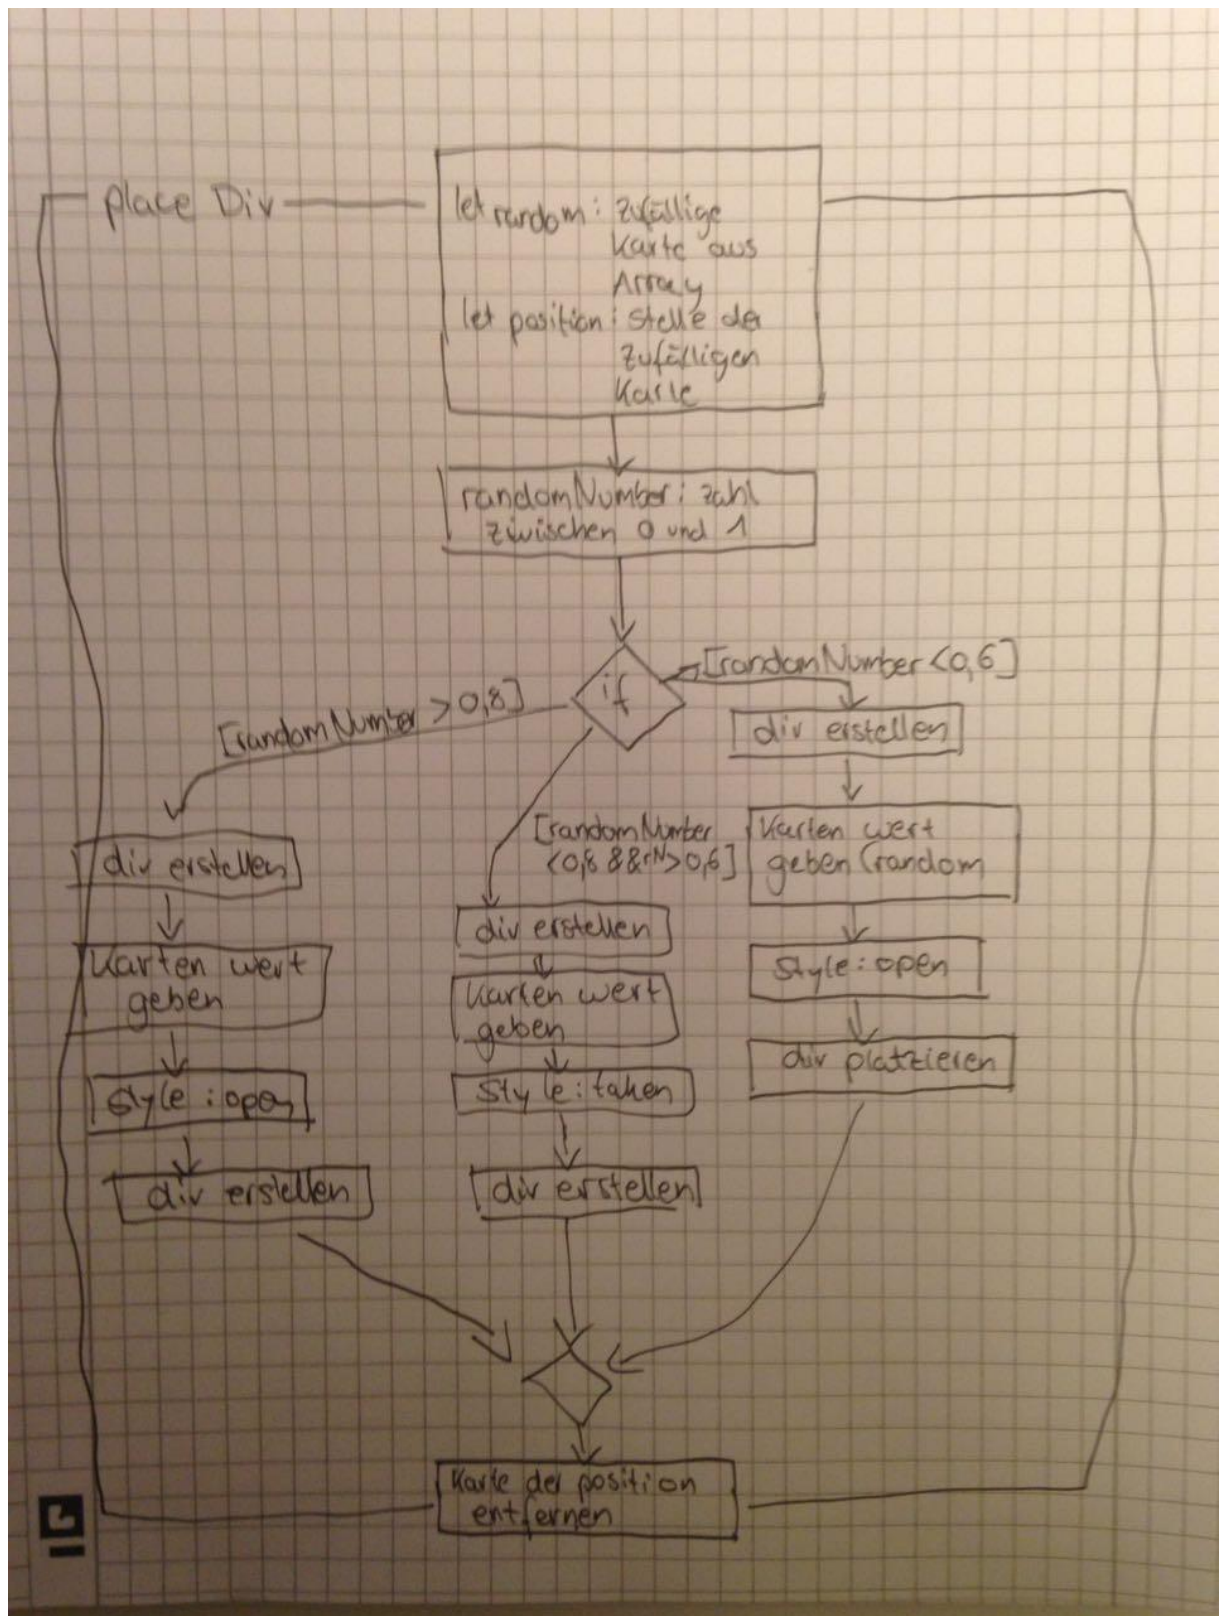 place Div
let random : Zufällige
Karte aus
Array
let position : Stelle der
Zufälligen
Karte
randomNumber : zahl
zwischen 0 und 1
if
[randomNumber <0,6]
div erstellen
Karten wert
geben (random
Style : open
div platzieren
[randomNumber
<0,8 && rN>0,6]
div erstellen
Karten wert
geben
Style : taken
div erstellen
[randomNumber > 0,8]
div erstellen
Karten wert
geben
Style : open
div erstellen
Karte der position
entfernen